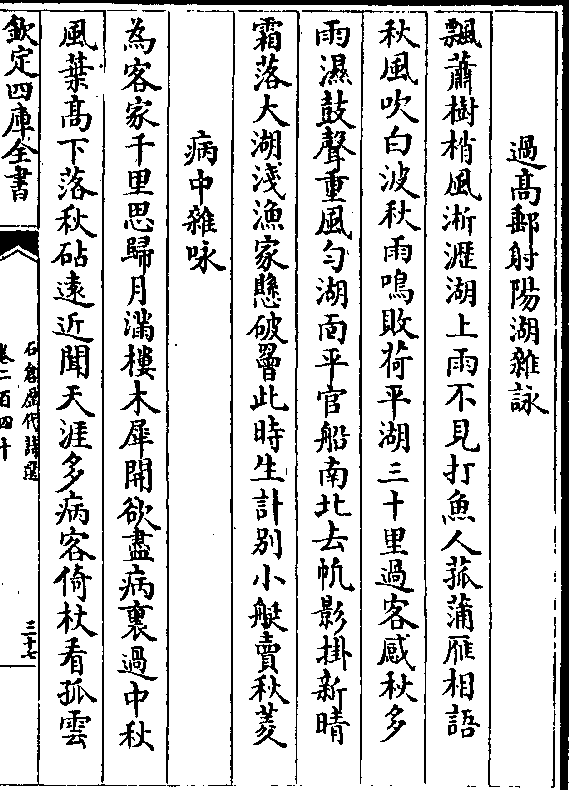 過髙郵射陽湖雜詠
飄蕭樹梢風淅瀝湖上雨不見打魚人菰蒲雁相語
秋風吹白波秋雨鳴敗荷平湖三十里過客感秋多
雨濕鼓聲重風勻湖面平官船南北去帆影掛新晴
霜落大湖淺漁家懸破罾此時生計别小艇賣秋菱
病中雜咏
為客家千里思歸月滿樓木犀開欲盡病裏過中秋
風葉髙下落秋砧逺近聞天涯多病客倚杖看孤雲
欽定四庫全書
石倉歴代詩選
卷二百四十
三十七